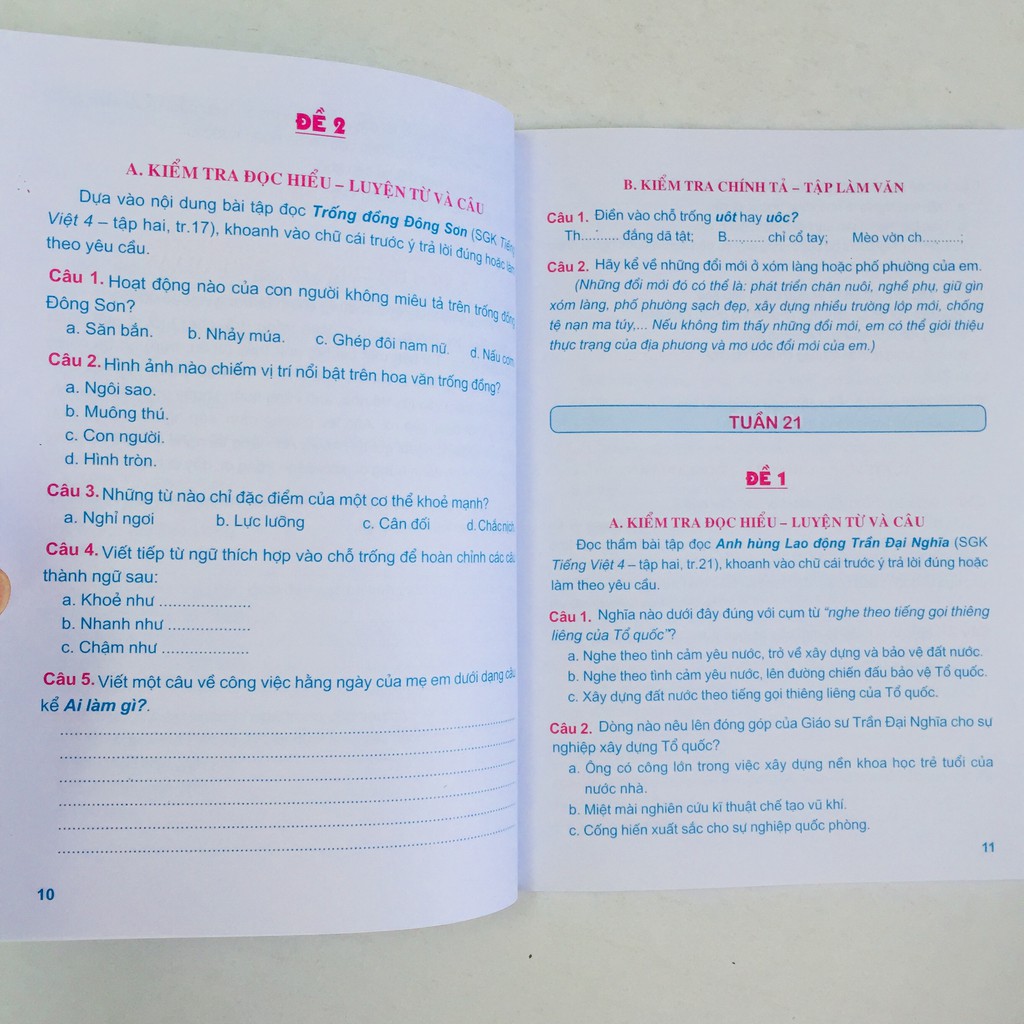 ĐỀ 2
A. KIỂM TRA ĐỌC HIỂU – LUYỆN TỪ VÀ CÂU
Dựa vào nội dung bài tập đọc Trống đồng Đông Sơn (SGK Tiếng
Việt 4 – tập hai, tr.17), khoanh vào chữ cái trước ý trả lời đúng hoặc làm
theo yêu cầu.
Câu 1. Hoạt động nào của con người không miêu tả trên trống đồng
Đông Sơn?
a. Săn bắn. b. Nhảy múa. c. Ghép đôi nam nữ. d. Nấu cơm
Câu 2. Hình ảnh nào chiếm vị trí nổi bật trên hoa văn trống đồng?
a. Ngôi sao.
b. Muông thú.
c. Con người.
d. Hình tròn.
Câu 3. Những từ nào chỉ đặc điểm của một cơ thể khoẻ mạnh?
a. Nghỉ ngơi b. Lực lưỡng c. Cân đối d. Chắc nịch
Câu 4. Viết tiếp từ ngữ thích hợp vào chỗ trống để hoàn chỉnh các câu
thành ngữ sau:
a. Khoẻ như ....................
b. Nhanh như ..................
c. Chậm như ...................
Câu 5. Viết một câu về công việc hằng ngày của mẹ em dưới dạng câu
kể Ai làm gì?.
10
B. KIỂM TRA CHÍNH TẢ – TẬP LÀM VĂN
Câu 1. Điền vào chỗ trống uôt hay uôc?
Th.......... đắng dã tật; B.......... chỉ cổ tay; Mèo vờn ch..........;
Câu 2. Hãy kể về những đổi mới ở xóm làng hoặc phố phường của em.
(Những đổi mới đó có thể là: phát triển chăn nuôi, nghề phụ, giữ gìn
xóm làng, phố phường sạch đẹp, xây dựng nhiều trường lớp mới, chống
tệ nạn ma túy,... Nếu không tìm thấy những đổi mới, em có thể giới thiệu
thực trạng của địa phương và mơ ước đổi mới của em.)
TUẦN 21
ĐỀ 1
A. KIỂM TRA ĐỌC HIỂU – LUYỆN TỪ VÀ CÂU
Đọc thầm bài tập đọc Anh hùng Lao động Trần Đại Nghĩa (SGK
Tiếng Việt 4 – tập hai, tr.21), khoanh vào chữ cái trước ý trả lời đúng hoặc
làm theo yêu cầu.
Câu 1. Nghĩa nào dưới đây đúng với cụm từ “nghe theo tiếng gọi thiêng
liêng của Tổ quốc”?
a. Nghe theo tình cảm yêu nước, trở về xây dựng và bảo vệ đất nước.
b. Nghe theo tình cảm yêu nước, lên đường chiến đấu bảo vệ Tổ quốc.
c. Xây dựng đất nước theo tiếng gọi thiêng liêng của Tổ quốc.
Câu 2. Dòng nào nêu lên đóng góp của Giáo sư Trần Đại Nghĩa cho sự
nghiệp xây dựng Tổ quốc?
a. Ông có công lớn trong việc xây dựng nền khoa học trẻ tuổi của
nước nhà.
b. Miệt mài nghiên cứu kĩ thuật chế tạo vũ khí.
c. Cống hiến xuất sắc cho sự nghiệp quốc phòng.
11